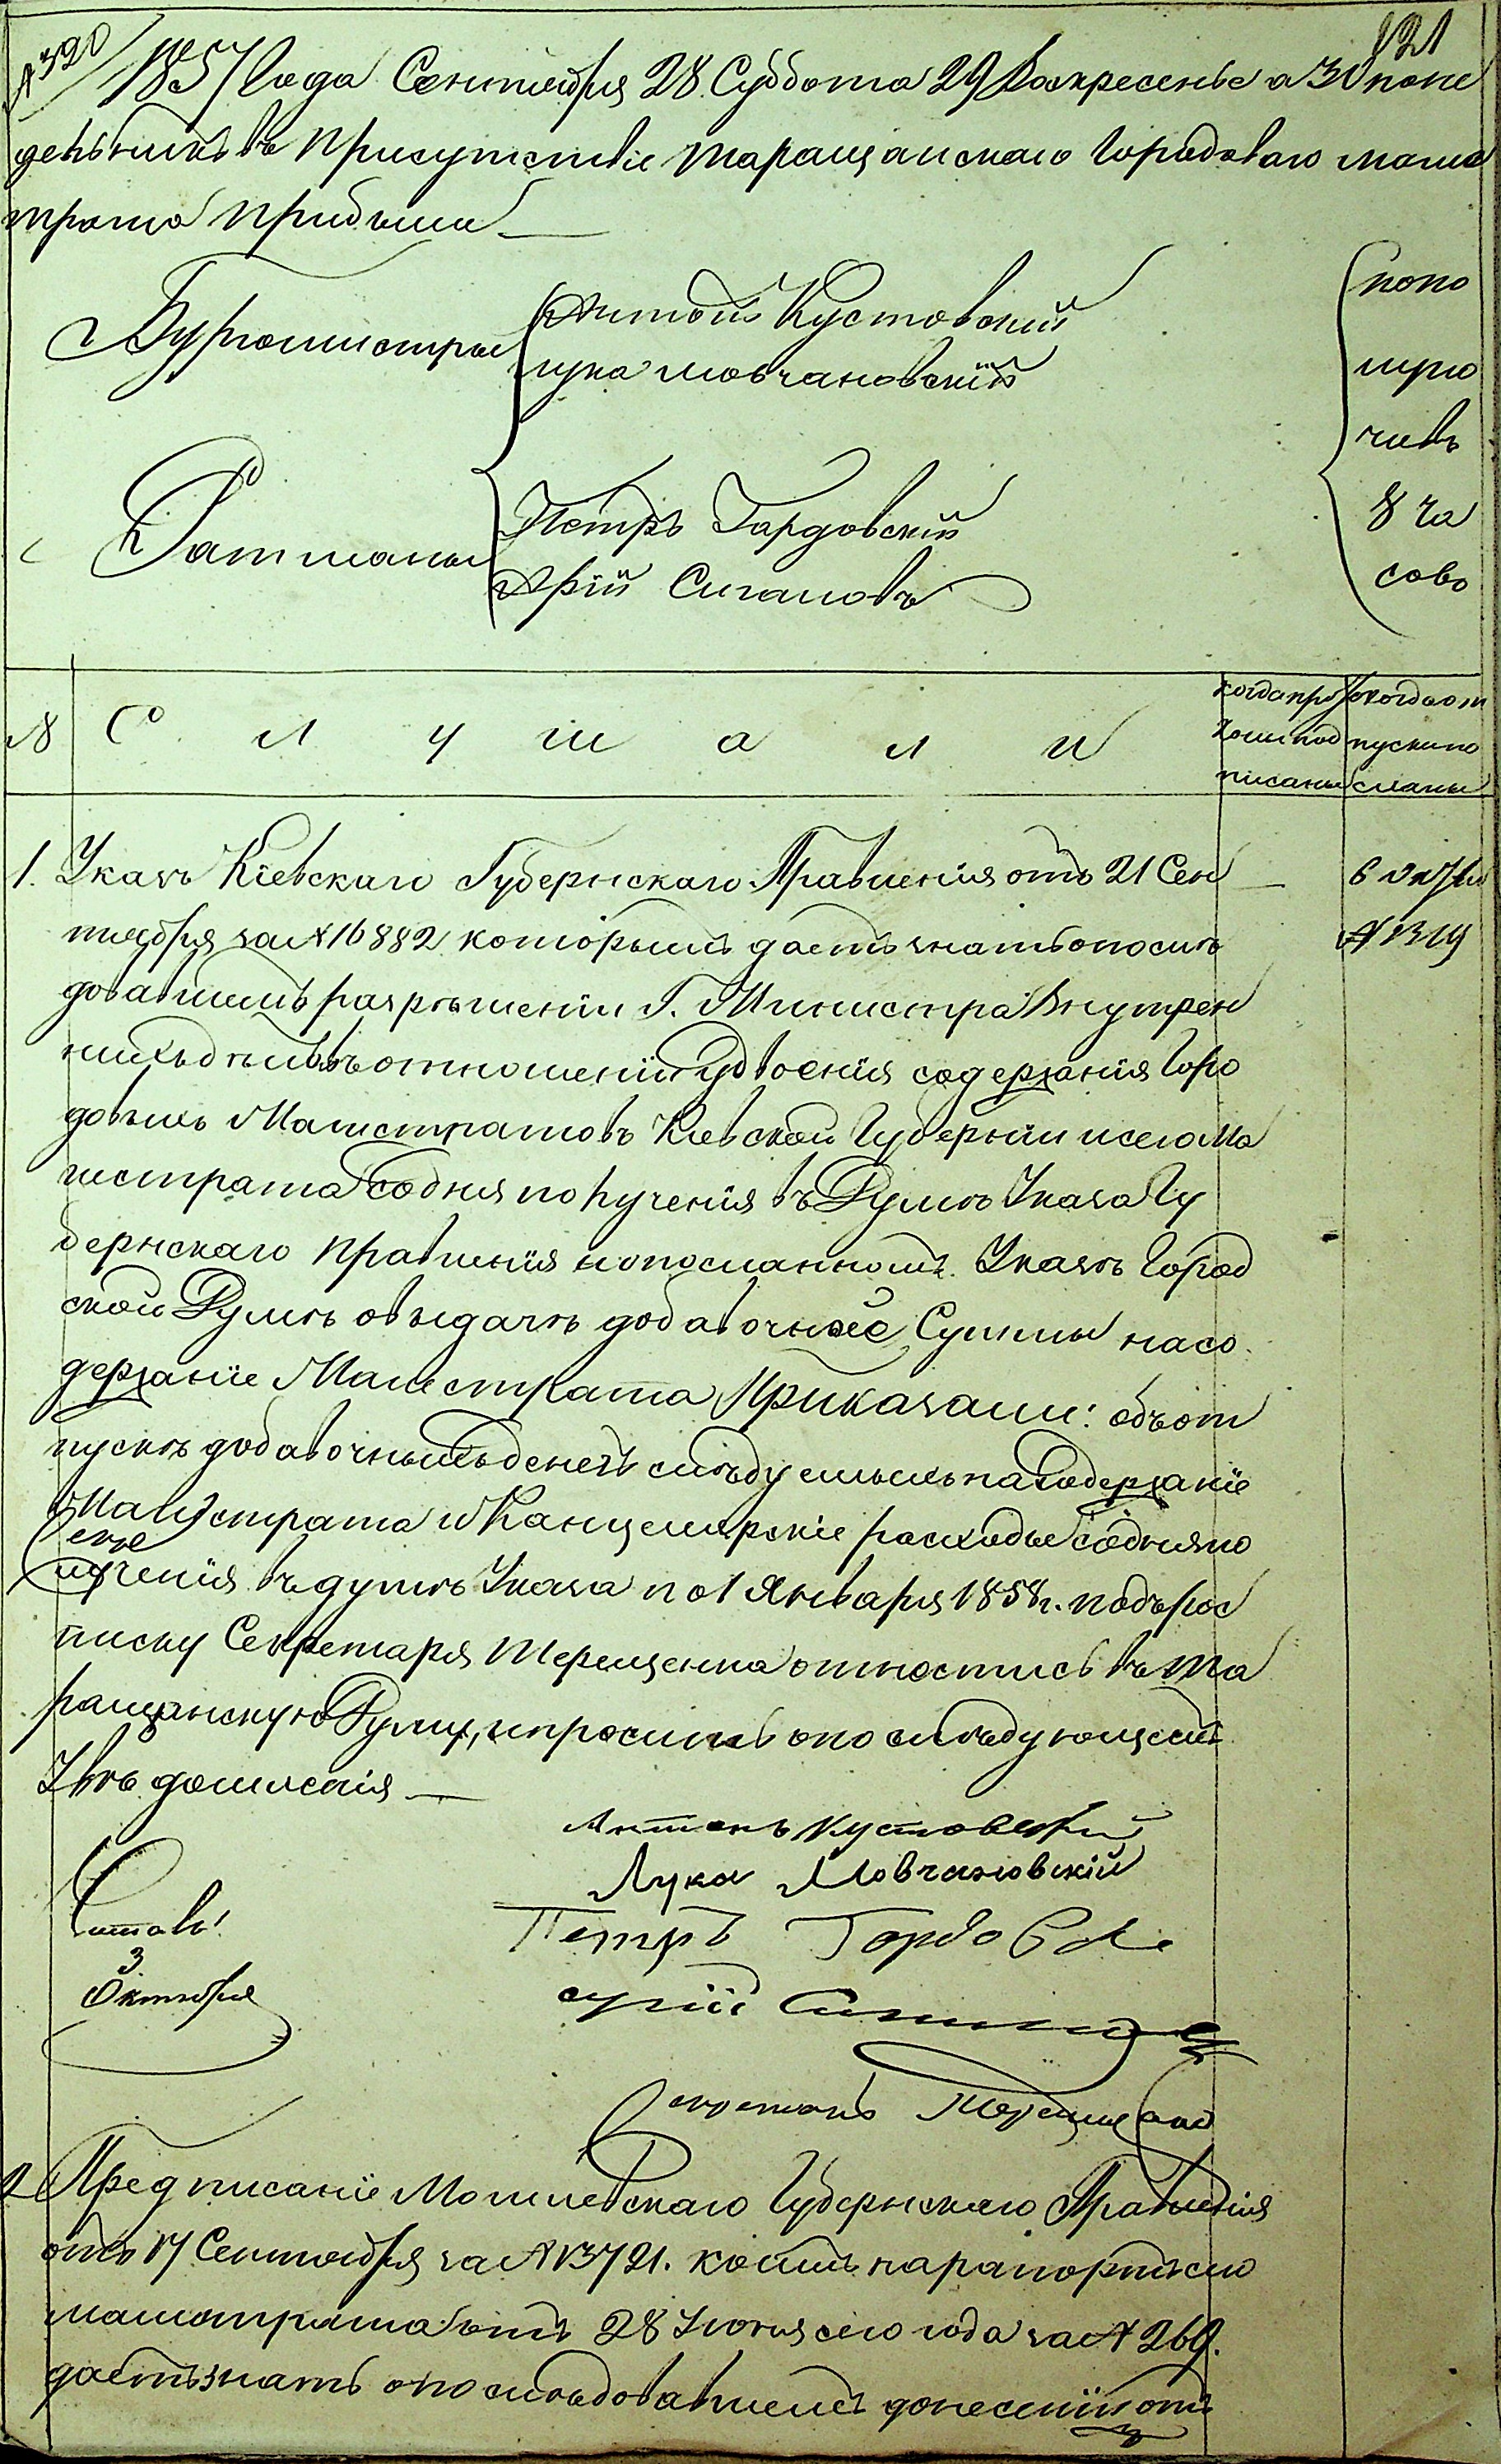 № 320
121
1857 Года Сентября 28 Суббота 29 Воскресенье а 30 поне
дельникъ въ присутствіе Таращанскаго Городоваго Магис
трата прибыли
Бургомистры
Антонъ Кустовскій
Лука Мовчановскій
попо
лу́но
чивъ
8 ча
совъ
Ратманы
Петръ Гордовскій
Юрій Сигановъ
№ С л у ш а л и
когда про
токолъ под
писаны
когда от
пуски по
сланы
1. Указъ Кіевскаго Губернскаго Правленія отъ 21 Сен
тября за № 16882 которымъ даетъ знать о послѣ
довавшемъ разрѣшеніи Г. Министра Внутрен
нихъ дѣлъ въ отношеніи удвоенія содержанія Горо
довыхъ Магистратовъ Кіевской Губерніи и сего Ма
гистрата со дня полученія въ Думѣ Указа Гу
бернскаго Правленія и о посланномъ Указѣ Город
ской Думѣ о выдачѣ добавочной Суммы на со
держаніе Магистрата Приказали: объ от
пускѣ добавочныхъ денегъ слѣдуемыхъ на содержаніе
Магистрата и Канцелярскіе расходы со дня по
лученія въ думѣ Указа по 1 Января 1858 г. подъ рос
писку Секретаря Терещенка отнестись въ Та
ращанскую Думу, и просить о послѣдующемъ
Увѣдомленія
6 Октя
№ 1319
Антонъ Кустовскій
Лука Мовчановскій
Петръ Гордовскі
Юрій
Секретарь Терещенко
Читалъ
3
Октября
2 Предписаніе Могилевскаго Губернскаго Правленія
отъ 17 Сентября за № 13721. коимъ на рапортъ сего
магистрата отъ 28 Іюня сего года за № 269.
даетъ знать о послѣдовавшемъ донесеніи отъ